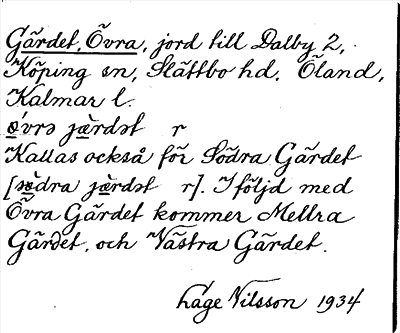 Gärdet, Övra, jord till Dalby 2,
Köping sn, Slättbo hd. Öland,
Kalmar l.
ö́vrə jæ̀rdət r
Kallas också för Södra Gärdet
[sö̀dra jæ̀rdət r]. I följd med
Övra Gärdet kommer Mellra
Gärdet, och Västra Gärdet.
Lage Nilsson 1934